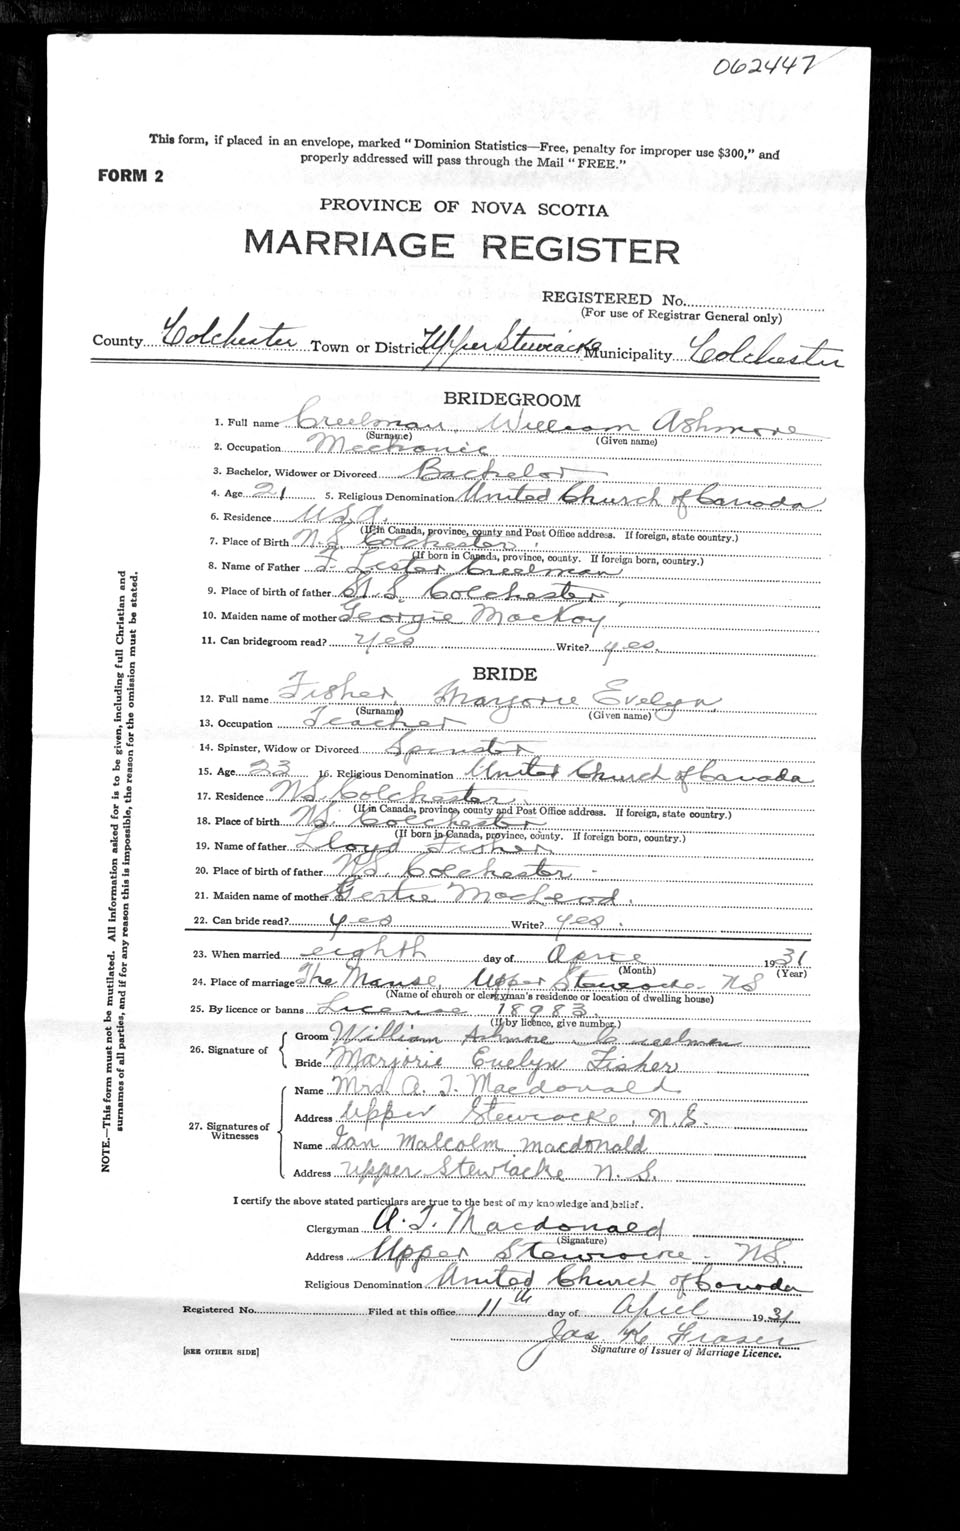 062447
This form, if placed in an envelope, marked "Dominion Statistics—Free, penalty for improper use $300," and
properly addressed will pass through the Mail "FREE."
FORM 2
PROVINCE OF NOVA SCOTIA
MARRIAGE REGISTER
REGISTERED No.
(For use of Registrar General only)
County Colchester Town or District Upper Stewiacke Municipality Colchester
BRIDEGROOM
1. Full name Creelman, William Ashmore
(Surname) (Given name)
2. Occupation Mechanic
3. Bachelor, Widower or Divorced Bachelor
4. Age 21 5. Religious Denomination United Church of Canada
6. Residence U.S.A.
(If in Canada, province, county and Post Office address. If foreign, state country.)
7. Place of Birth N.S. Colchester
(If born in Canada, province, county. If foreign born, country.)
8. Name of Father F. Lester Creelman
9. Place of birth of father N.S. Colchester
10. Maiden name of mother Georgie MacKay
11. Can bridegroom read? yes Write? yes.
BRIDE
12. Full name Fisher, Marjorie Evelyn
(Surname) (Given name)
13. Occupation Teacher
14. Spinster, Widow or Divorced Spinster
15. Age 23 16. Religious Denomination United Church of Canada
17. Residence N.S. Colchester
(If in Canada, province, county and Post Office address. If foreign, state country.)
18. Place of birth N.S. Colchester
(If born in Canada, province, county. If foreign born, country.)
19. Name of father Lloyd Fisher
20. Place of birth of father N.S. Colchester
21. Maiden name of mother Gertie MacLeod
22. Can bride read? yes Write? yes.
23. When married eighth day of April 1931
(Month) (Year)
24. Place of marriage The Manse, Upper Stewiacke NS
(Name of church or clergyman's residence or location of dwelling house)
25. By licence or banns License 18983
(If by licence, give number.)
26. Signature of
Groom William Ashmore Creelman
Bride Marjorie Evelyn Fisher
27. Signatures of Witnesses
Name Mrs. A. T. Macdonald
Address Upper Stewiacke, N.S.
Name Ian Malcolm Macdonald
Address Upper Stewiacke N. S.
I certify the above stated particulars are true to the best of my knowledge and belief.
Clergyman A. T. Macdonald
(Signature)
Address Upper Stewiacke. NS.
Religious Denomination United Church of Canada
Registered No. Filed at this office 11th day of April 1931
Jas. K Fraser
Signature of Issuer of Marriage Licence.
[SEE OTHER SIDE]
NOTE.—This form must not be mutilated. All information asked for is to be given, including full Christian and
surnames of all parties, and if for any reason this is impossible, the reason for the omission must be stated.